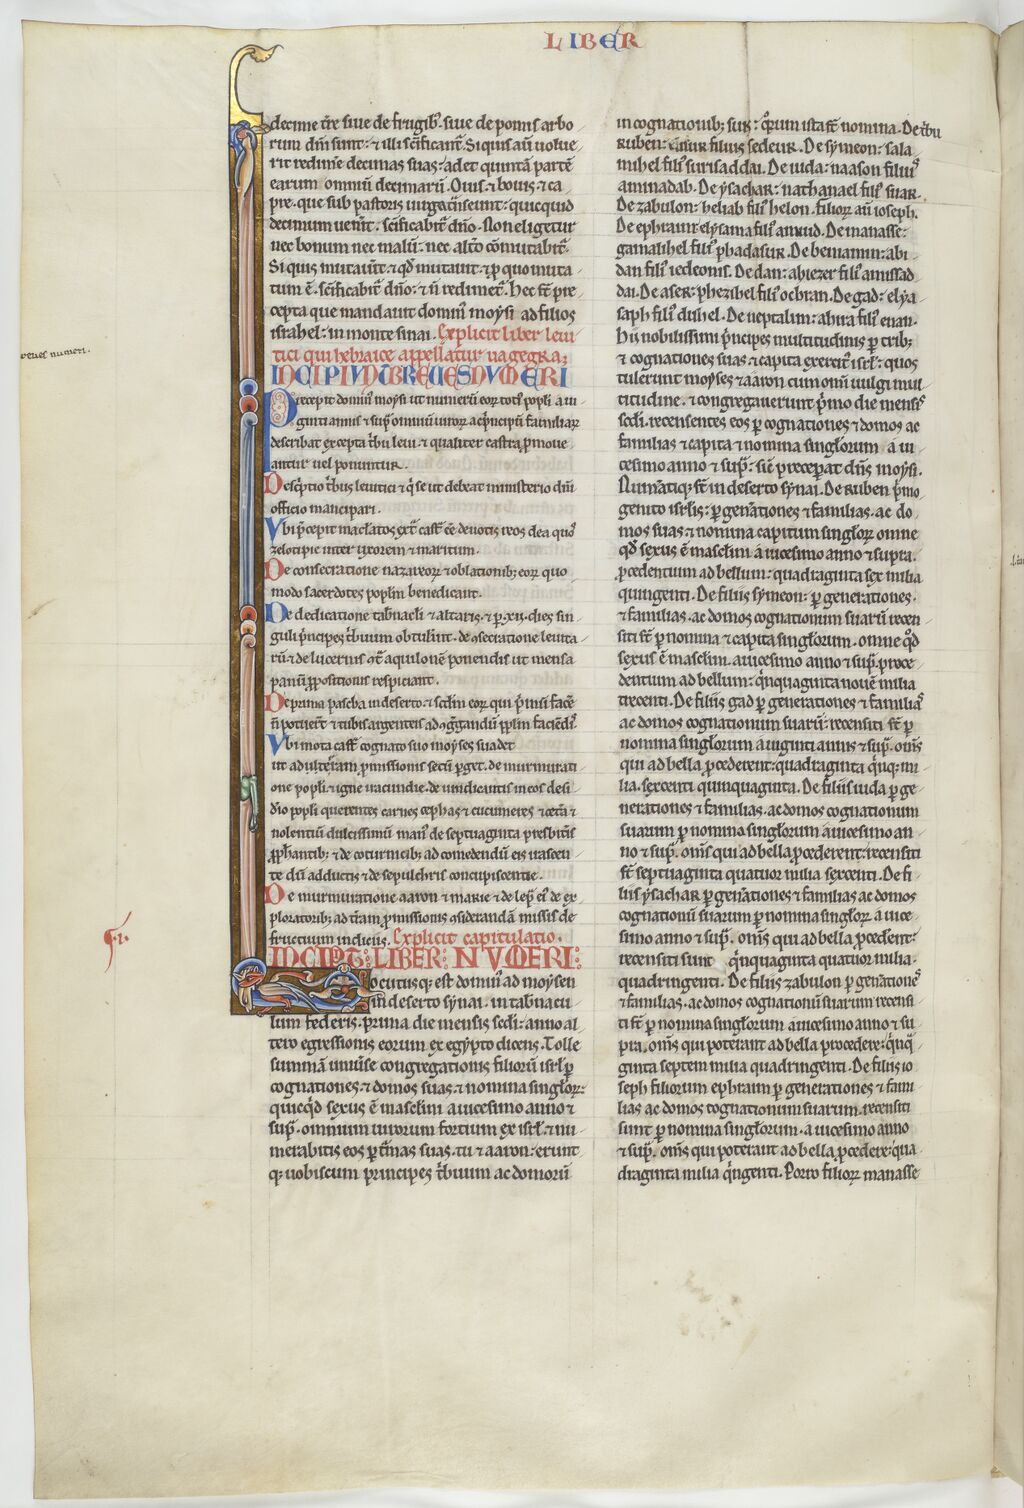 LIBER
decime t̄re siue de frugib; siue de pomis arbo
rum dn̄i sunt: ⁊ illi sc̄ificant᷑. Siquis aū uolue
rit redime decimas suas: addet quintā partē
earum omniū decimarū. Ouis ⁊ bouis ⁊ ca
pre. que sub pastoris uirga c̄nsent᷑: quicquid
decimum uenīt. sc̄ificabit᷑ dn̄o. Non eligetur
nec bonum nec malū. nec alt̄o cōmutabit᷑.
Si quis mutaūt: ⁊ qd̄ mutatū. ⁊ ꝓ quo muta
tum ē. sc̄ificabit᷑ dn̄o: ⁊ n̄ redimet᷑. Hec st̄ pre
cepta que mandauit domin᷒ moẏsi ad filios
israhel: in monte sinai. Explicit liber leui
tici qui hebraice appellatur uagegra;
INCIPIVNT BREVES NVMERI
Precepit domin᷒ moẏsi ut numerū eor̄ toti᷒ popl̄i a ui
ginti annis ⁊ sup̄ omniū uiror̄ ac p̄ncipū familiar̄
describat excepta t̄bu leui ⁊ qualiter castra ꝓmoue
antur uel ponuntur.
Desc̄ptio t̄b᷒ leuitici ⁊ q̄ se ut debeat ministerio dn̄i
officio mancipari.
Vbi p̄cepit
zelotipie inter uxorem ⁊ maritum.
De consecratione nazareor̄ ⁊ oblationib; eor̄ quo
modo sacerdotes popl̄m benedicant.
De dedicatione tab̄nacl̄i ⁊ altaris ⁊ p̄ .xii. dies sin
guli p̄ncipes t̄buum obtulert̄. de ꝯsecratione leuita
rū ⁊ de lucernis ꝯt̄ aquilonē ponendis ut mensa
panū ꝓpositionis respiciant.
De prima pascha in deserto ⁊ sc̄d̄m eor̄ qui p̄ inſi facē
n̄ potuert̄ ⁊ tubis argenteis ad ꝯg̅gandū ppl̄m faciēdi᷒.
Vbi mota cast̄ cognato suo moẏses suadet
ut ad ulterā ꝓmissionis secū perget. de murmurati
one popl̄i ⁊ igne uacundie. de uindicantis in eos desi
d̄io popl̄i querentes carnes cephas ⁊ cucumeres ⁊ cet̄a ⁊
nolentiū dulcissimū man̄. de septuaginta presbit̄is
ꝓph̄antib; ⁊ de coturnicib; ad comedendū eis uascen
te dū adductis ⁊ de sepulchris concupiscentie.
De murmuratione aaron ⁊ marie ⁊ de lep̄ ei᷒ de ex
ploratorib; ad t̄ram ꝓmissionis ꝯsiderandā missis de
fructuum indiciis. Explicit capitulatio.
INCIPIT: LIBER: NVMERI:
Locutusq; est domin᷒ ad moẏsen
in deserto sẏnai. in tab̄nacu
lum federis. prima die mensis sc̄di: anno al
tero egressionis eorum ex egẏpto dicens. Tolle
summā uniūse congregationis filiorū isr̄l p̄
cognationes. ⁊ domos suas. ⁊ nomina singl̄or̄:
quicq̄d sexus ē masclini a uicesimo anno ⁊
sup̄. omnium uirorum fortium ex isr̄l. ⁊ nu
merabitis eos p̄ t̄mas suas. tu ⁊ aaron: erunt
q; uobiscum principes t̄buum ac domorū
in cognationib; suis: q̄rum ista st̄ nomina. De t̄bu
Ruben: elisur filius sedeur. De sẏmeon: sala
mihel fili᷒ surisaddai. De iuda: naason fili᷒
aminadab. De ẏsachar: nathanael fili᷒ suar.
De zabulon: heliab fili᷒ helon. filior̄ aū ioseph.
De ephraim: elẏsama fili᷒ amiud. De manasse:
gamalihel fili᷒ phadasur. De beniamin: abi
dan fili᷒ iedeonis. De dan: abiezer fili᷒ amisad
dai. De aser: phezihel fili᷒ ochran. De gad: elẏa
saph fili᷒ duhel. De neptalim: ahira fili᷒ enan.
Hii nobilissimi p̄ncipes multitudinis p̄ trib;
⁊ cognationes suas ⁊ capita exercit᷒ isr̄l: quos
tulerunt moẏses ⁊ aaron cum om̄i uulgi mul
titudine. ⁊ congregauerunt p̄mo die mensis
sc̄di. recensentes eos p̄ cognationes ⁊ domos ac
familias ⁊ capita ⁊ nomina singl̄orum a ui
cesimo anno ⁊ sup̄: sic̄ preceperat dn̄s moẏsi.
Num̄atiq; st̄ in deserto sẏnai. De ruben p̄mo
genito isr̄lis: p̄ gen̄ationes ⁊ familias. ac do
mos suas ⁊ nomina capitum singl̄or̄ omne
qd̄ sexus ē masclini a uicesimo anno ⁊ supra.
ꝓcedentium ad bellum: quadraginta sex milia
quingenti. De filiis sẏmeon: p̄ generationes.
⁊ familias. ac domos cognationum suarū recen
siti st̄ p̄ nomina ⁊ capita singl̄orum. omne q̄d
sexus ē masclini. a uicesimo anno ⁊ sup̄. proce
dentium ad bellum: q̄nquaginta nouē milia
trecenti. De filiis gad p̄ generationes ⁊ familias
ac domos cognationum suarū: recensiti st̄ p̄
nomina singl̄orum a uiginti annis ⁊ sup̄. om̄s
qui ad bella ꝓcederent: quadraginta q̄nq; mi
lia. sexcenti quinquaginta. De filiis iuda p̄ ge
nerationes ⁊ familias. ac domos cognationum
suarum p̄ nomina singl̄orum a uicesimo an
no ⁊ sup̄. om̄s qui ad bella ꝓcederent: recensiti
st̄ septuaginta quatuor milia sexcenti. De fi
liis ẏsachar p̄ gen̄ationes ⁊ familias ac domos
cognationū suarum p̄ nomina singl̄or̄ a uice
simo anno ⁊ sup̄. om̄s qui ad bella ꝓcedent:
recensiti sunt q̄nquaginta quatuor milia.
quadringenti. De filiis zabulon p̄ gen̄ationes
⁊ familias. ac domos cognationū suarum recensi
ti st̄ p̄ nomina singl̄orum a uicesimo anno ⁊ su
pra. om̄s qui poterant ad bella procedere: q̄nq̄
ginta septem milia quadringenti. De filiis io
seph filiorum ephraim p̄ generationes ⁊ fami
lias ac domos cognationum suarum. recensiti
sunt p̄ nomina singl̄orum. a uicesimo anno
⁊ sup̄. om̄s qui poterant ad bella ꝓcedere: qua
draginta milia q̄ngenti. Porro filior̄ manasse
breues numeri.